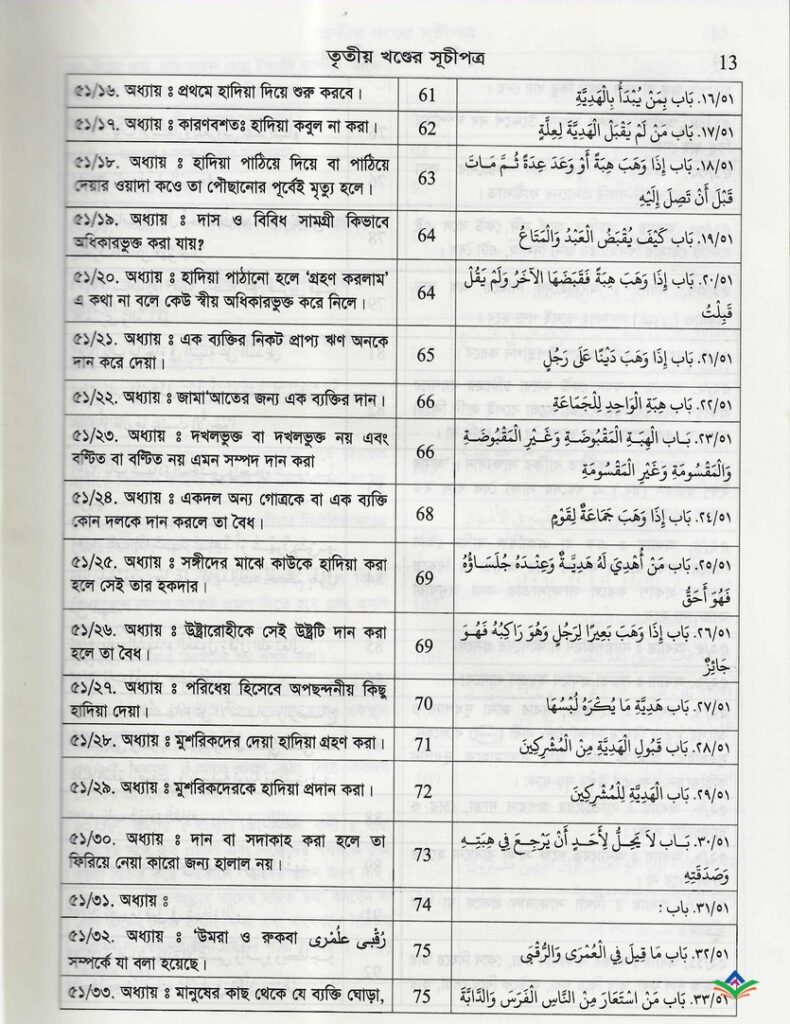 তৃতীয় খণ্ডের সূচীপত্র
13
৫১/১৬. অধ্যায় ঃ প্রথমে হাদিয়া দিয়ে শুরু করবে।
61
١٦/٥١. بَاب بِمَنْ يُبْدَأُ بِالْهَدِيَّةِ
৫১/১৭. অধ্যায় ঃ কারণবশতঃ হাদিয়া কবুল না করা।
62
١٧/٥١. بَاب مَنْ لَمْ يَقْبَلْ الْهَدِيَّةَ لِعِلَّةٍ
৫১/১৮. অধ্যায় ঃ হাদিয়া পাঠিয়ে দিয়ে বা পাঠিয়ে
দেয়ার ওয়াদা কওে তা পৌছানোর পূর্বেই মৃত্যু হলে।
63
١٨/٥١. بَاب إِذَا وَهَبَ هِبَةً أَوْ وَعَدَ عِدَةً ثُمَّ مَاتَ
قَبْلَ أَنْ تَصِلَ إِلَيْهِ
৫১/১৯. অধ্যায় ঃ দাস ও বিবিধ সামগ্রী কিভাবে
অধিকারভুক্ত করা যায়?
64
١٩/٥١. بَاب كَيْفَ يُقْبَضُ الْعَبْدُ وَالْمَتَاعُ
৫১/২০. অধ্যায় ঃ হাদিয়া পাঠানো হলে ‘গ্রহণ করলাম’
এ কথা না বলে কেউ স্বীয় অধিকারভুক্ত করে নিলে।
64
٢٠/٥١. بَاب إِذَا وَهَبَ هِبَةً فَقَبَضَهَا الآخَرُ وَلَمْ يَقُلْ
قَبِلْتُ
৫১/২১. অধ্যায় ঃ এক ব্যক্তির নিকট প্রাপ্য ঋণ অনকে
দান করে দেয়া।
65
٢١/٥١. بَاب إِذَا وَهَبَ دَيْنًا عَلَى رَجُلٍ
৫১/২২. অধ্যায় ঃ জামা‘আতের জন্য এক ব্যক্তির দান।
66
٢٢/٥١. بَاب هِبَةِ الْوَاحِدِ لِلْجَمَاعَةِ
৫১/২৩. অধ্যায় ঃ দখলভুক্ত বা দখলভুক্ত নয় এবং
বণ্টিত বা বণ্টিত নয় এমন সম্পদ দান করা
66
٢٣/٥١. بَاب الْهِبَةِ الْمَقْبُوضَةِ وَغَيْرِ الْمَقْبُوضَةِ
وَالْمَقْسُومَةِ وَغَيْرِ الْمَقْسُومَةِ
৫১/২৪. অধ্যায় ঃ একদল অন্য গোত্রকে বা এক ব্যক্তি
কোন দলকে দান করলে তা বৈধ।
68
٢٤/٥١. بَاب إِذَا وَهَبَ جَمَاعَةٌ لِقَوْمٍ
৫১/২৫. অধ্যায় ঃ সঙ্গীদের মাঝে কাউকে হাদিয়া করা
হলে সেই তার হকদার।
69
٢٥/٥١. بَاب مَنْ أُهْدِيَ لَهُ هَدِيَّةٌ وَعِنْدَهُ جُلَسَاؤُهُ
فَهُوَ أَحَقُّ
৫১/২৬. অধ্যায় ঃ উষ্ট্রারোহীকে সেই উষ্ট্রটি দান করা
হলে তা বৈধ।
69
٢٦/٥١. بَاب إِذَا وَهَبَ بَعِيرًا لِرَجُلٍ وَهُوَ رَاكِبُهُ فَهُوَ
جَائِزٌ
৫১/২৭. অধ্যায় ঃ পরিধেয় হিসেবে অপছন্দনীয় কিছু
হাদিয়া দেয়া।
70
٢٧/٥١. بَاب هَدِيَّةِ مَا يُكْرَهُ لُبْسُهَا
৫১/২৮. অধ্যায় ঃ মুশরিকদের দেয়া হাদিয়া গ্রহণ করা।
71
٢٨/٥١. بَاب قَبُولِ الْهَدِيَّةِ مِنْ الْمُشْرِكِينَ
৫১/২৯. অধ্যায় ঃ মুশরিকদেরকে হাদিয়া প্রদান করা।
72
٢٩/٥١. بَاب الْهَدِيَّةِ لِلْمُشْرِكِينَ
৫১/৩০. অধ্যায় ঃ দান বা সদাকাহ করা হলে তা
ফিরিয়ে নেয়া কারো জন্য হালাল নয়।
73
٣٠/٥١. بَاب لاَ يَحِلُّ لِأَحَدٍ أَنْ يَرْجِعَ فِي هِبَتِهِ
وَصَدَقَتِهِ
৫১/৩১. অধ্যায় ঃ
74
٣١/٥١. بَاب :
৫১/৩২. অধ্যায় ঃ ‘উমরা ও রুকবা رُقْبى عُلمْرى
সম্পর্কে যা বলা হয়েছে।
75
٣٢/٥١. بَاب مَا قِيلَ فِي الْعُمْرَى وَالرُّقْبَى
৫১/৩৩. অধ্যায় ঃ মানুষের কাছ থেকে যে ব্যক্তি ঘোড়া,
75
٣٣/٥١. بَاب مَنْ اسْتَعَارَ مِنْ النَّاسِ الْفَرَسَ وَالدَّابَّةَ